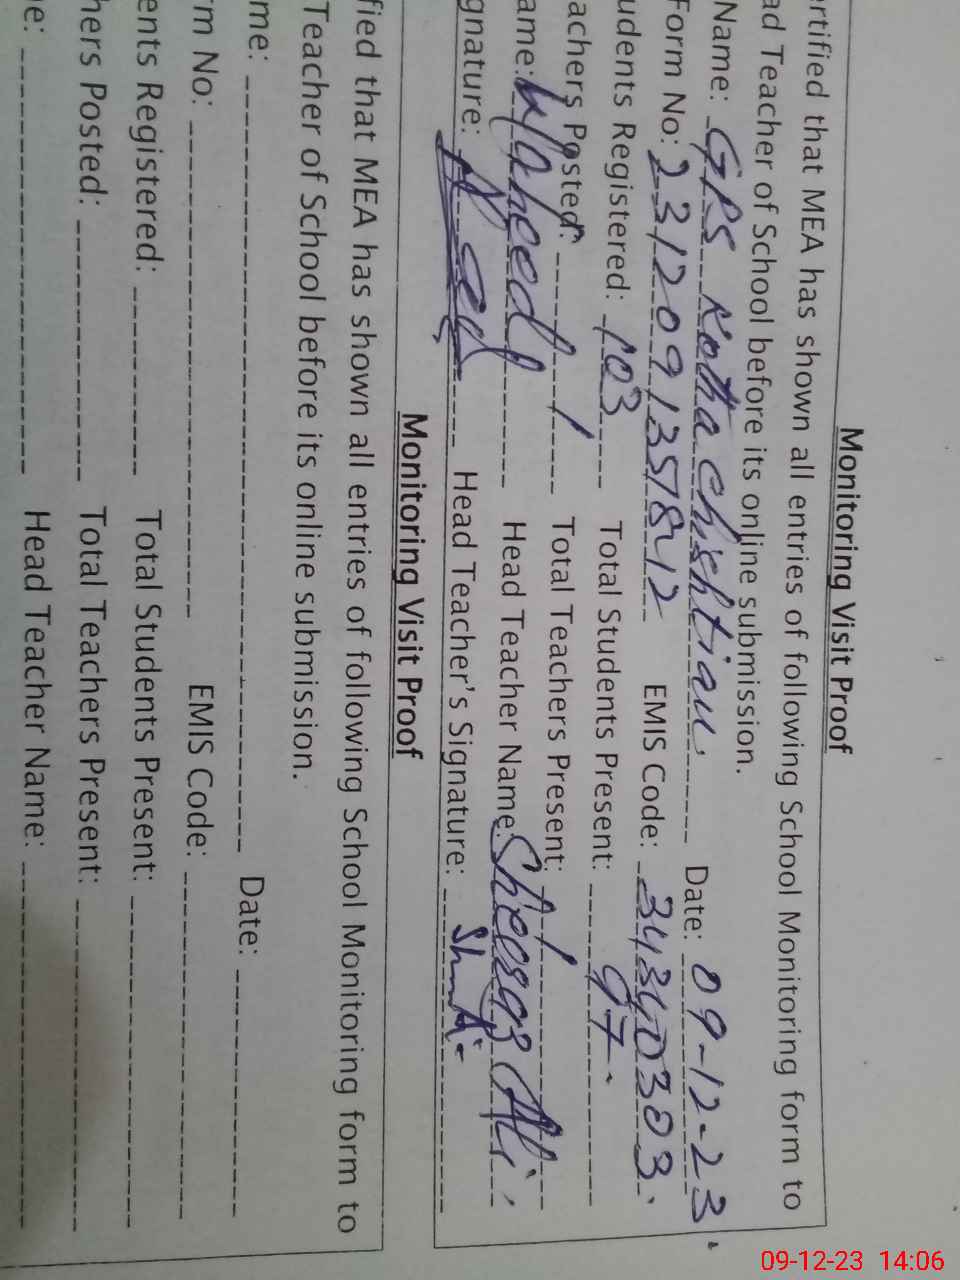 Monitoring Visit Proof
ertified that MEA has shown all entries of following School Monitoring form to
ad Teacher of School before its online submission.
Name: GPS Kotha Chishtian. Date: 09-12-23
Form No: 231209135812 EMIS Code: 34340303.
udents Registered: 103 Total Students Present: 97.
achers Posted: 1 Total Teachers Present: 1
ame: Waheed Head Teacher Name: Ali
gnature: Head Teacher's Signature:
Monitoring Visit Proof
fied that MEA has shown all entries of following School Monitoring form to
Teacher of School before its online submission.
me: Date:
rm No: EMIS Code:
ents Registered: Total Students Present:
hers Posted: Total Teachers Present:
e: Head Teacher Name:
09-12-23 14:06